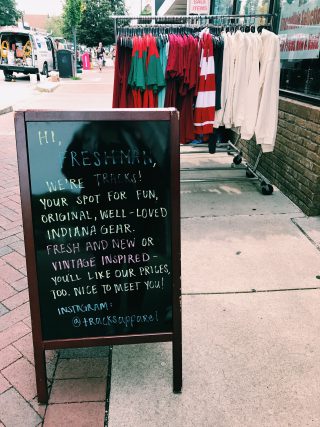 HI,
FRESHMAN,
WE'RE TRACKS!
YOUR SPOT FOR FUN,
ORIGINAL, WELL-LOVED
INDIANA GEAR.
FRESH AND NEW OR
VINTAGE INSPIRED -
YOU'LL LIKE OUR PRICES,
TOO. NICE TO MEET YOU!
INSTAGRAM:
@tracksapparel